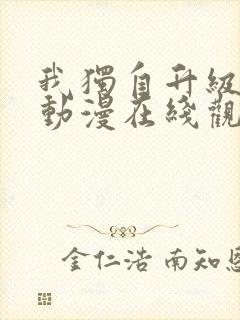 我獨自升級
動漫在綫觀
金仁浩 南知恩